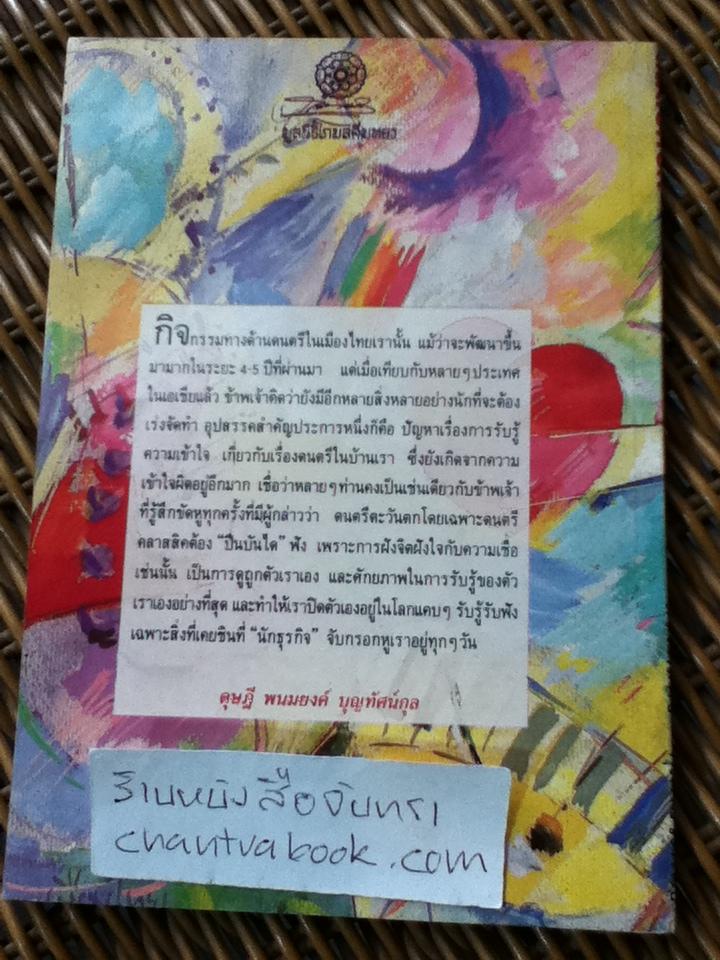 มูลนิธิโกมลคีมทอง
กิจกรรมทางด้านดนตรีในเมืองไทยเรานั้น แม้ว่าจะพัฒนาขึ้น
มามากในระยะ 4-5 ปีที่ผ่านมา แต่เมื่อเทียบกับหลายๆประเทศ
ในเอเชียแล้ว ข้าพเจ้าคิดว่ายังมีอีกหลายสิ่งหลายอย่างนักที่จะต้อง
เร่งจัดทำ อุปสรรคสำคัญประการหนึ่งก็คือ ปัญหาเรื่องการรับรู้
ความเข้าใจ เกี่ยวกับเรื่องดนตรีในบ้านเรา ซึ่งยังเกิดจากความ
เข้าใจผิดอยู่อีกมาก เชื่อว่าหลายๆท่านคงเป็นเช่นเดียวกับข้าพเจ้า
ที่รู้สึกขัดหูทุกครั้งที่มีผู้กล่าวว่า ดนตรีตะวันตกโดยเฉพาะดนตรี
คลาสสิคต้อง "ปีนบันได" ฟัง เพราะการฝังจิตฝังใจกับความเชื่อ
เช่นนั้น เป็นการดูถูกตัวเราเอง และศักยภาพในการรับรู้ของตัว
เราเองอย่างที่สุด และทำให้เราปิดตัวเองอยู่ในโลกแคบๆ รับรู้รับฟัง
เฉพาะสิ่งที่เคยชินที่ "นักธุรกิจ" จับกรอกหูเราอยู่ทุกๆวัน
ดุษฎี พนมยงค์ บุญทัศน์กุล
ร้านหนังสือจันทรา
chantrabook.com